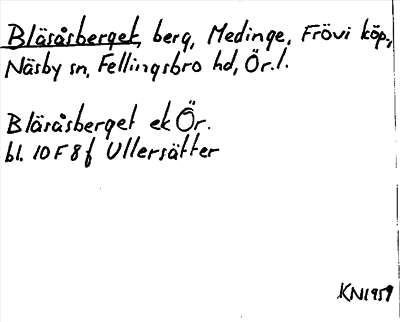 Bläsåsberget, berg, Medinge, Frövi köp.,
Näsby sn, Fellingsbro hd, Ör.l.
Bläsåsberget ek Ör.
bl. 10 F 8 f Ullersätter
KN1959